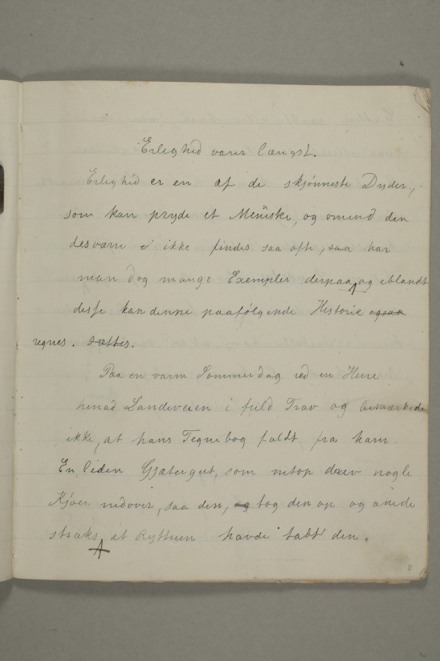 Erlighed varer længst.
Erlighed er en af de skjønneste Dyder,
som kan pryde et Menüske, og omend den
desværre ikke findes saa ofte, saa har
man dog mange Exempler derpaa, og iblandt
disse kan denne paafölgende Historie ogsaa
regnes. sættes.
Paa en varm Sommerdag red en Herre
henad Landeveien i fuld Trav og bemærkede
ikke, at hans Tegnebog faldt fra ham
En liden Gjætergut, som netop drev nogle
Kjøer nedover, saa den, og tog den op og anede
straks, at Rytteren havde tabt den.